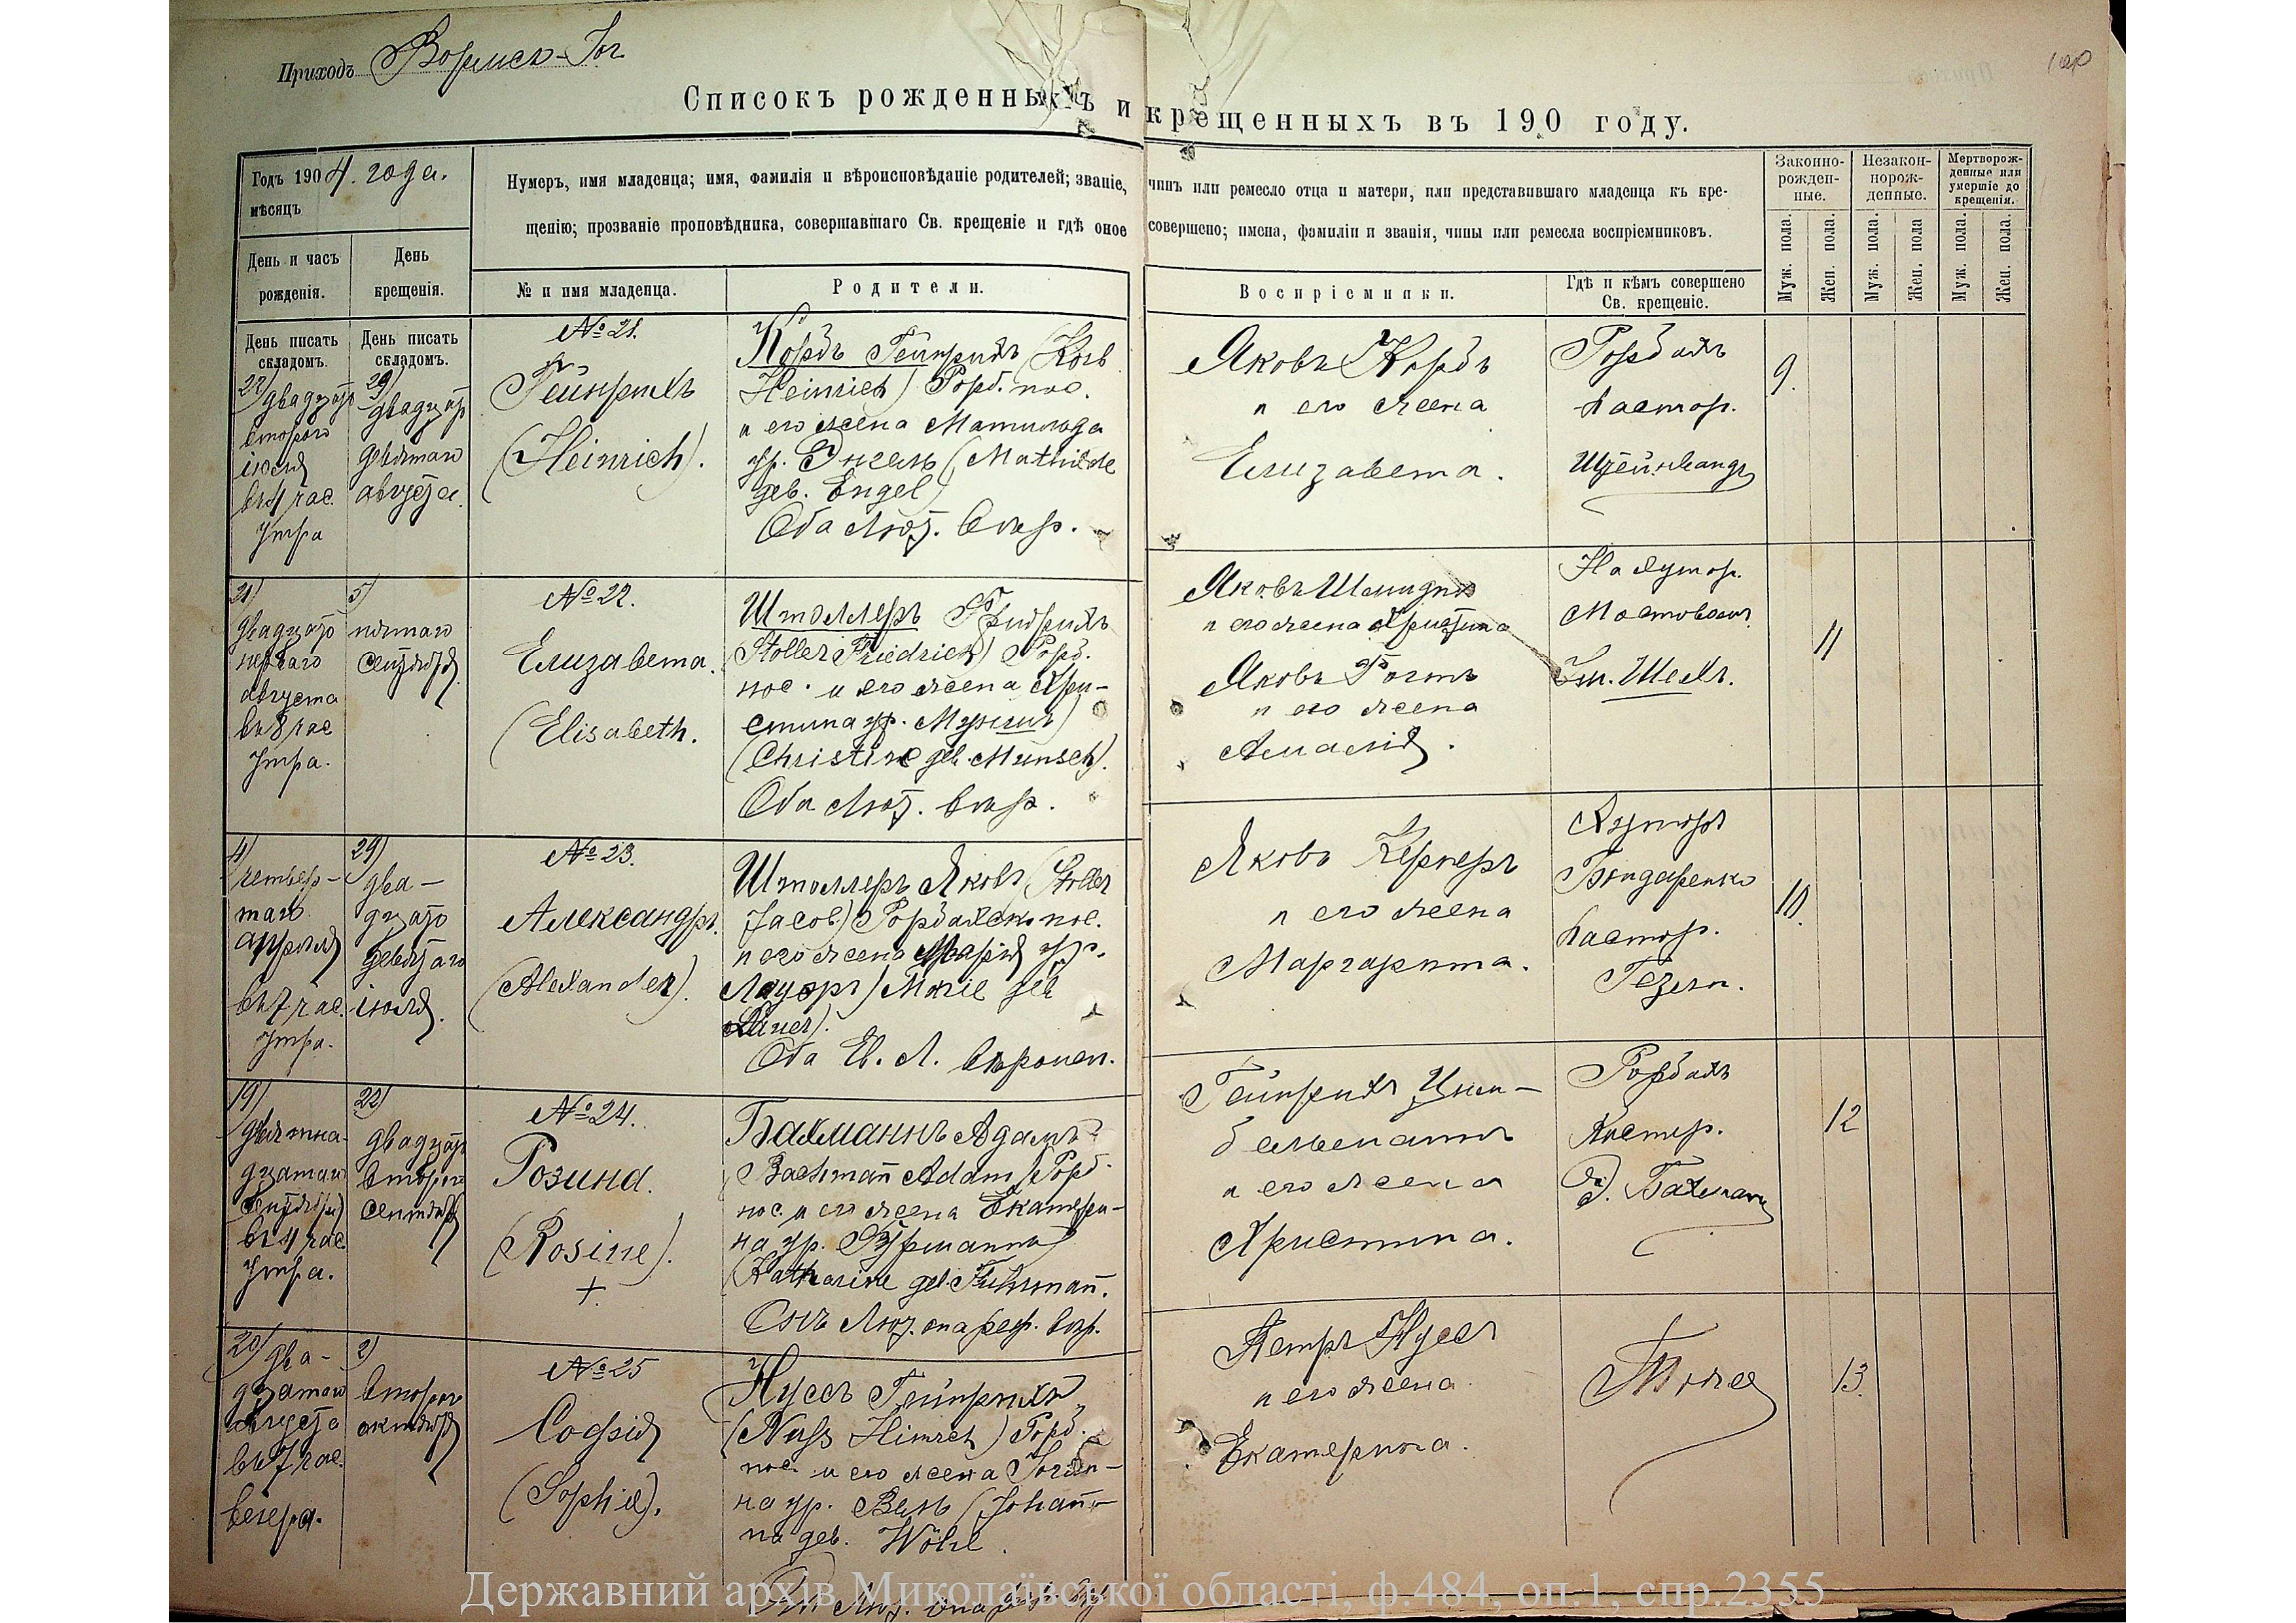 Приходъ Вормсъ-Іог
Списокъ рожденныхъ и крещенныхъ въ 190 году.
Годъ 1904. года.
мѣсяцъ
День и часъ
рожденія.
День
крещенія.
Нумеръ, имя младенца; имя, фамилія и вѣроисповѣданіе родителей; званіе, чинъ или ремесло отца и матери, или представившаго младенца къ кре-
щенію; прозваніе проповѣдника, совершавшаго Св. крещеніе и гдѣ оное совершено; имена, фамиліи и званія, чины или ремесла воспріемниковъ.
№ и имя младенца.
Родители.
Воспріемники.
Гдѣ и кѣмъ совершено
Св. крещеніе.
Законно-
рожден-
ные.
Незакон-
норож-
денные.
Мертворож-
денные или
умершіе до
крещенія.
Муж. пола.
Жен. пола.
Муж. пола.
Жен. пола
Муж. пола.
Жен. пола.
День писать
складомъ.
День писать
складомъ.
22) двадцать
второго
іюля
въ 4 час.
утра
29)
двадцать
девятаго
августа.
№ 21.
Гейнрихъ
(Heinrich).
Корбъ Гейнрихъ (Korb
Heinrich) Рорб. пос.
и его жена Матильда
ур. Энгель (Mathilde
geb. Engel)
Оба Лют. вѣр.
Яковъ Корбъ
и его жена
Елизавета.
Рорбахъ
Пастор.
Штейнвандъ
9.
21)
двадцать
перваго
августа
въ 8 час
утра.
5)
пятаго
сентября
№ 22.
Елизавета.
(Elisabeth.
Штоллеръ Фридрихъ
(Stoller Friedrich) Рорб.
пос. и его жена Хри-
стина ур.
(Christine geb. Munsch).
Оба Лют. вѣр.
Яковъ Шмидтъ
и его жена Христина
Яковъ
и его жена
Амалія.
На хутор.
11
4)
четвер-
таго
апрѣля
въ 7 час.
утра.
29)
два-
дцать
девятаго
іюля.
№ 23.
Александръ.
(Alexander).
Штоллеръ Яковъ (Stoller
Jacob) Рорбахск. пос.
и его жена Марія ур.
Лауэръ) Marie geb
Оба Ев. Л. вѣроисп.
Яковъ Кернеръ
и его жена
Маргарита.
Хуторъ
Бондаренко
Пастор.
10.
19)
девятна-
дцатаго
сентября
въ 4 час
утра.
22)
двадцать
второго
сентября
№ 24.
Розина.
(Rosine).
+.
Бахманнъ Адамъ
(Bachmann Adam) Рорб.
пос. и его жена Екатери-
на ур. Фурманнъ
(Katharine geb. Fuhrmann.
Онъ Лют. она реф. вѣр.
Гейнрихъ Цим-
бельманнъ
и его жена
Христина.
Рорбахъ
Кистер.
Бахманнъ
12
20) два-
дцатаго
августа
въ 7 час.
вечера.
2)
второго
октября
№ 25
Софія
(Sophie).
Нуссъ Гейнрихъ
(Nuss Heinrich) Рорб.
пос. и его жена Іоган-
на ур. Вель (Johan-
na geb. Wöhl.
Онъ Лют. она
Петръ Нуссъ
и его жена
Екатерина.
Тоже
13.
Державний архів Миколаївської області, ф.484, оп.1, спр.2355